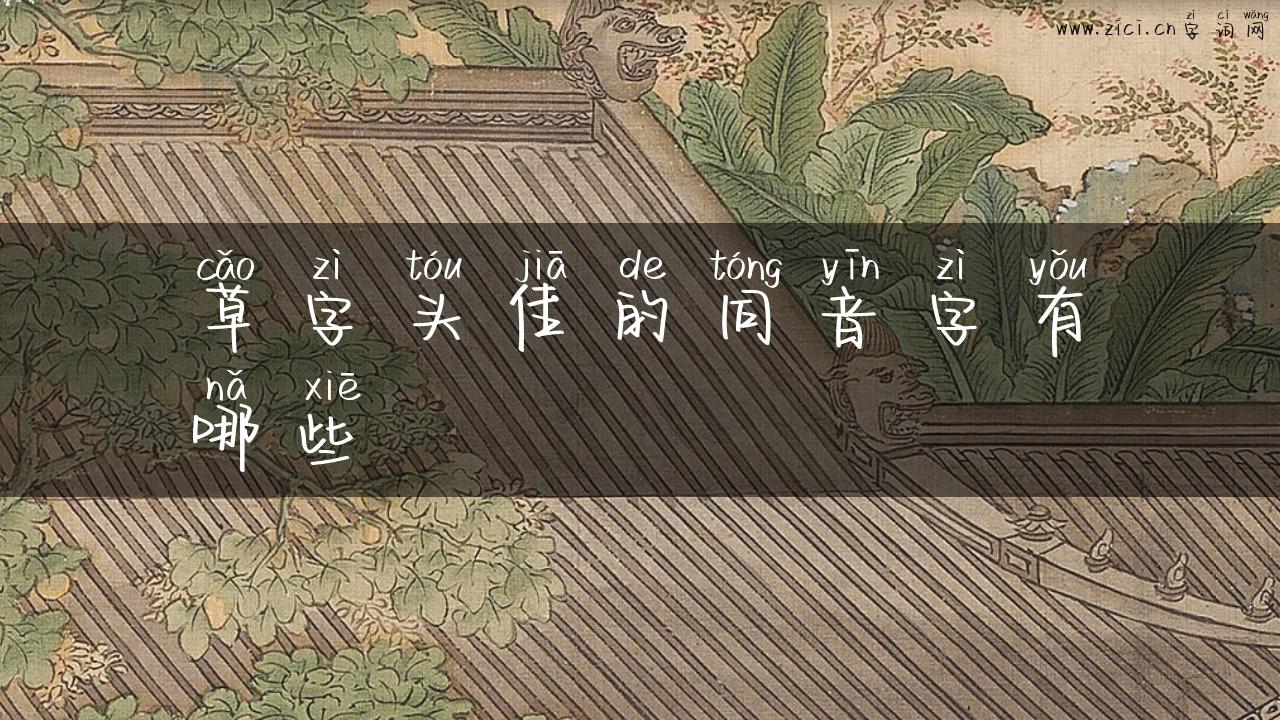 zì cí wǎng
www.zici.cn 字 词 网
cǎo zì tóu jiā de tóng yīn zì yǒu
草 字 头 佳 的 同 音 字 有
nǎ xiē
哪 些